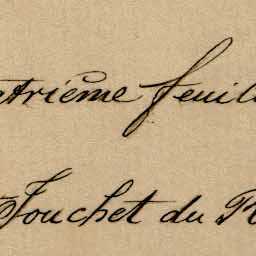 trième feuil
Fouchet du R